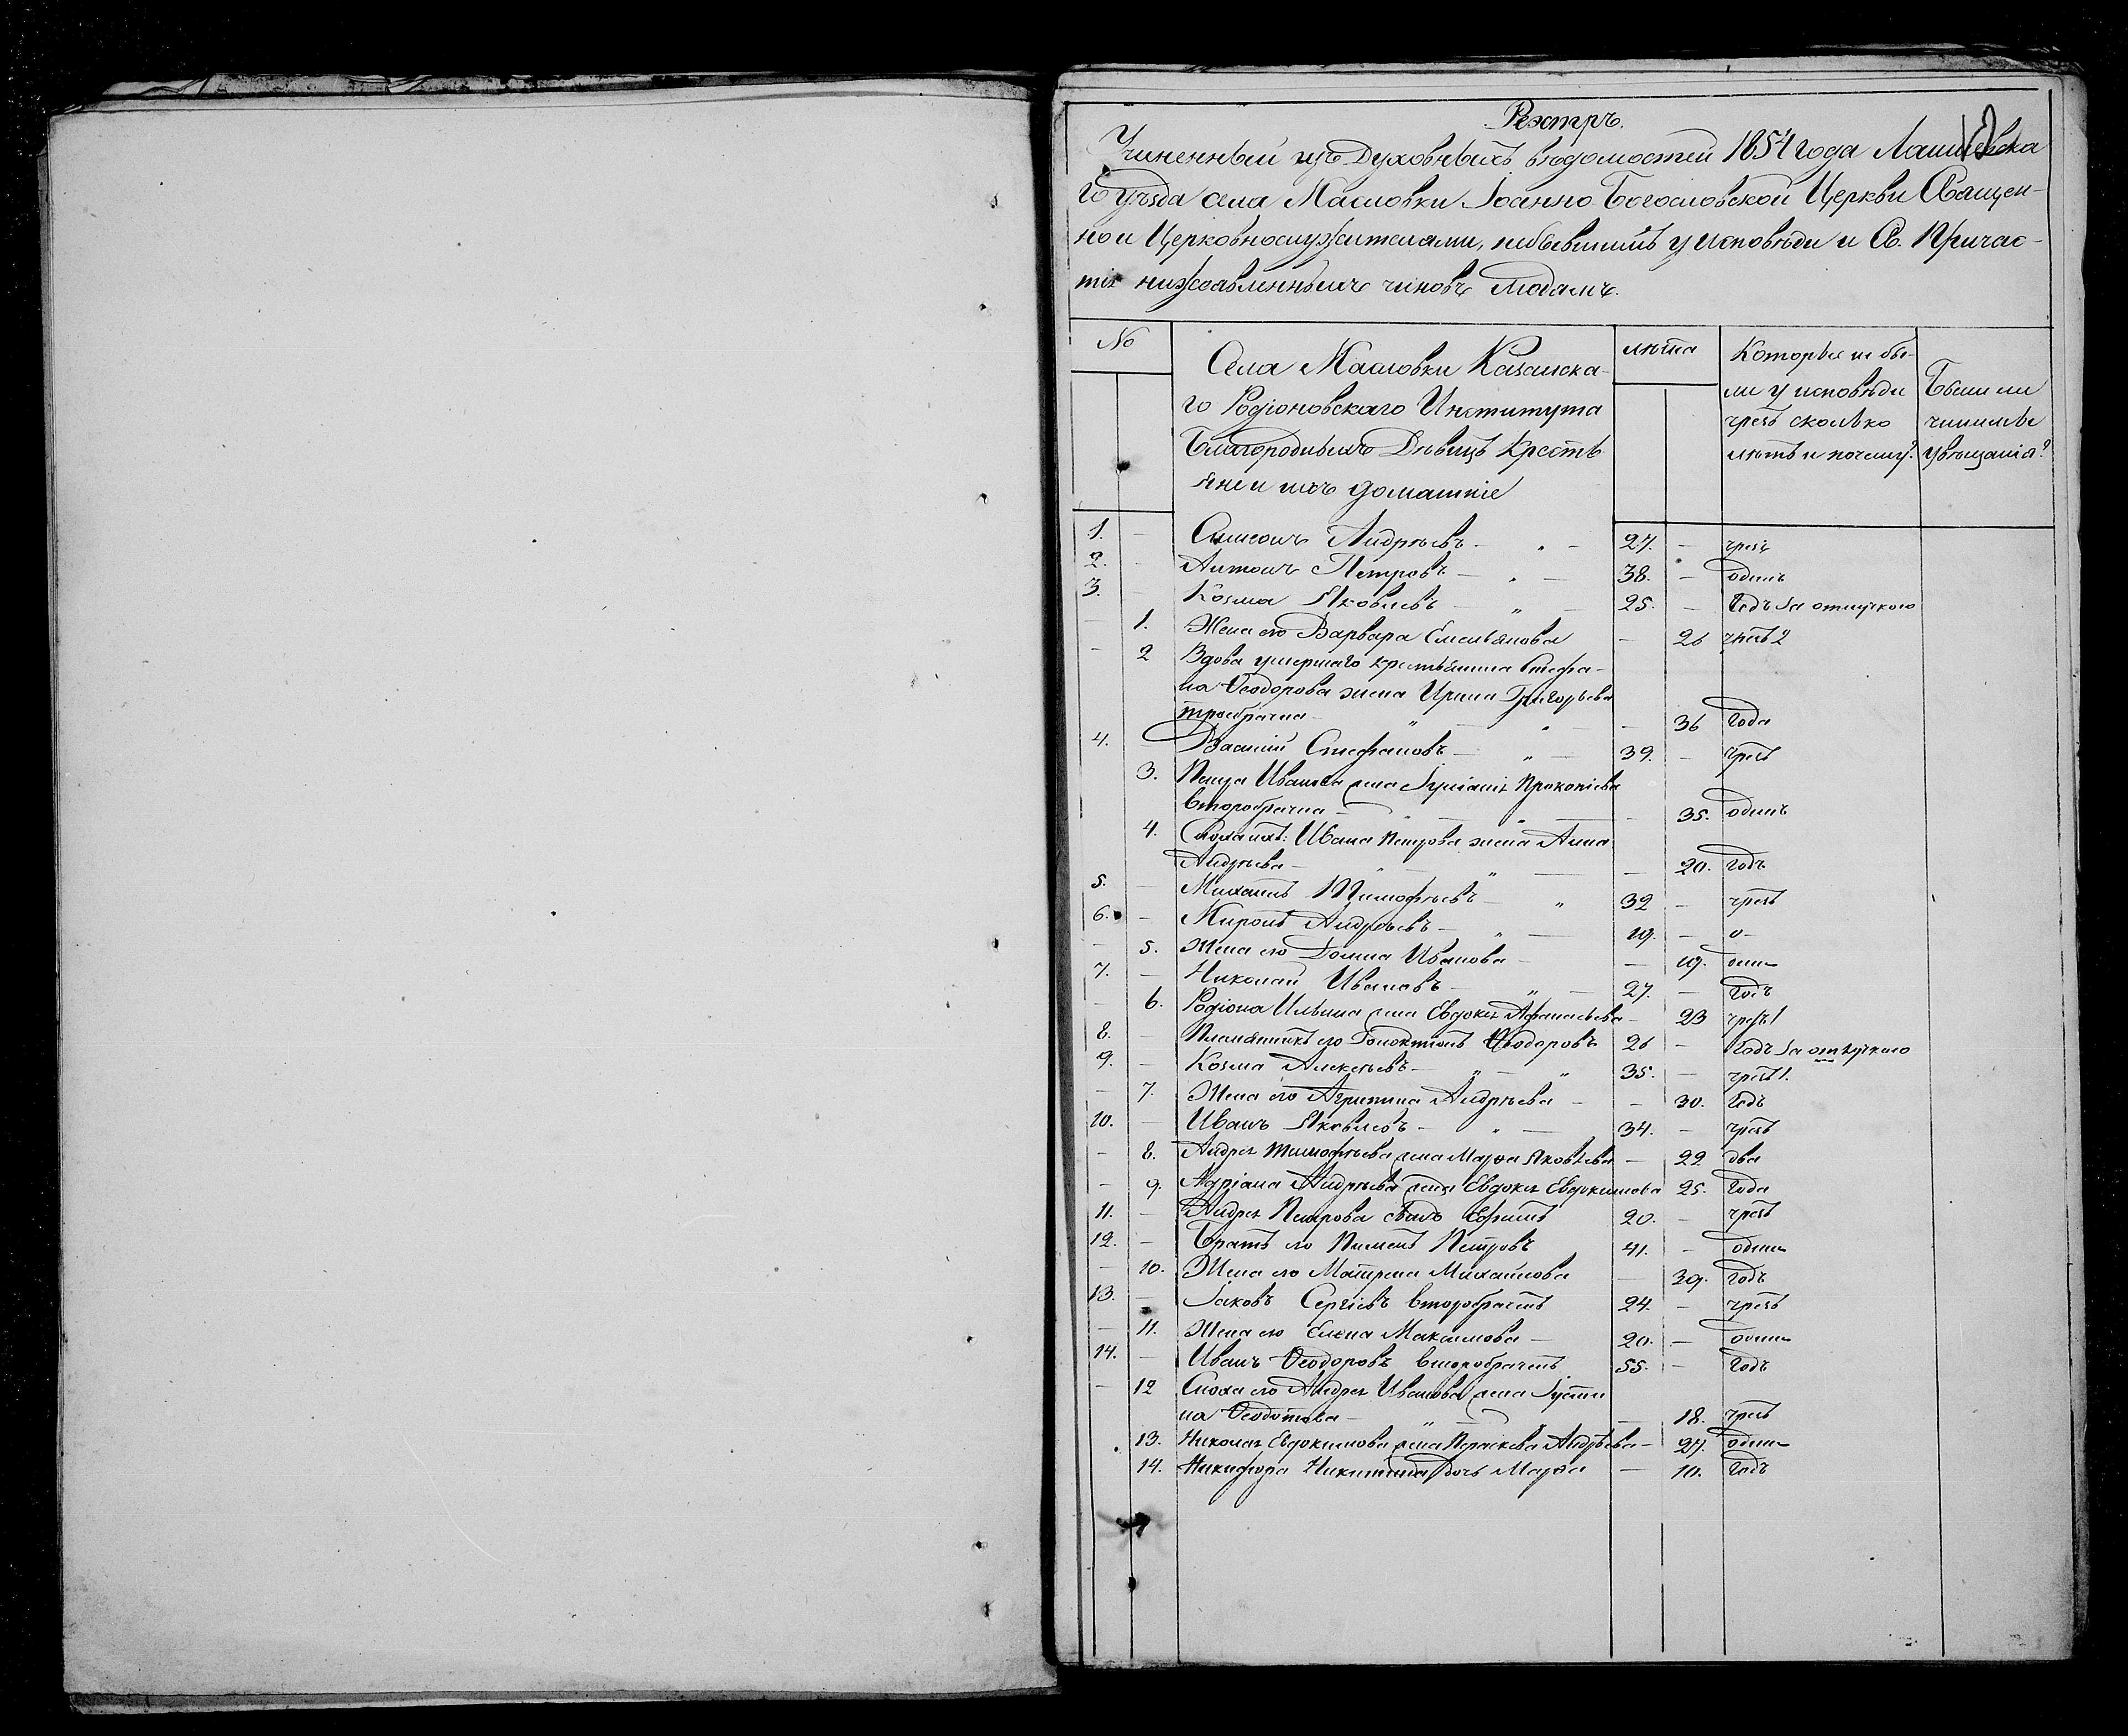 Реэстръ.
Учиненный изъ Духовныхъ вѣдомостей 1854 года Лаишевска
го уѣзда села Масловки Іоанно Богословской Церкви Священ-
но и Церковнослужителями, небывшимъ у исповѣди и Св. Причас-
тія нижеявленныхъ чиновъ людамъ.
№
Села Масловки Казанска-
го Родіоновскаго Института
Благородныхъ Дѣвицъ Крестъ
яне и ихъ домашніе
лѣта
Которые не бы-
ли у исповѣди
чрезъ сколько
лѣтъ и почему?
Были ли
чинимы
увѣщанія?
1. — Симеонъ Андрѣевъ — 27. — чрезъ
2. Антонъ Петровъ — 38. — одинъ
3. Козма Яковлевъ — 25. — Годъ за отлучкою
— 1. Жена его Варвара Емельянова — 26 чрезъ 2
— 2 Вдова умершаго крестьянина Стефа-
на Ѳеодорова жена Ирина Григорьева
троебрачна — 36 Года
4. Василій Стефановъ — 39. — чрезъ
3. Ивановa жена Прокопіева
второбрачна — 35. одинъ
4. Ивана Петрова жена Анна
Андрѣева — 20. годъ
5. — Михаилъ Тимофѣевъ — 32 — чрезъ
6. — Миронъ Андрѣевъ — 19. — о-
— 5. Жена его Домна Иванова — 19. динъ
7. — Николай Ивановъ — 27. — Годъ
— 6. Родіона Ильина жена Евдокія Афанасьева — 23 чрезъ 1
8. — Племянникъ его Галактіонъ Ѳеодоровъ 26 — Годъ за отлучкою
9. — Козма Алексѣевъ — 35. — чрезъ 1.
— 7. Жена его Агрипина Андрѣева — — 30. Годъ
10. — Иванъ Яковлевъ — 34. — чрезъ
— 8. Андрея Тимофѣева жена Марѳа Яковлева — 22 два
— 9. Адріана Андрѣева жена Евдокія Евдокимова 25. Года
11. — Андрея Петрова сынъ Ефимъ 20. — чрезъ
12. — Братъ его Пименъ Петровъ 41. — одинъ
— 10. Жена его Матрена Михайлова — 39. годъ
13. — Іаковъ Сергіевъ второбраченъ 24. — чрезъ
— 11. Жена его Елена Максимова — 20. — одинъ
14. — Иванъ Ѳеодоровъ второбраченъ 55. — Годъ
— 12 Сноха его Андрея Иванова жена Іусти
на Ѳеодотова — 18. чрезъ
13. Николая Евдокимова жена Параскева Андрѣева — 27. одинъ
14. Никифора Никитина дочь Марѳа — 10. Годъ